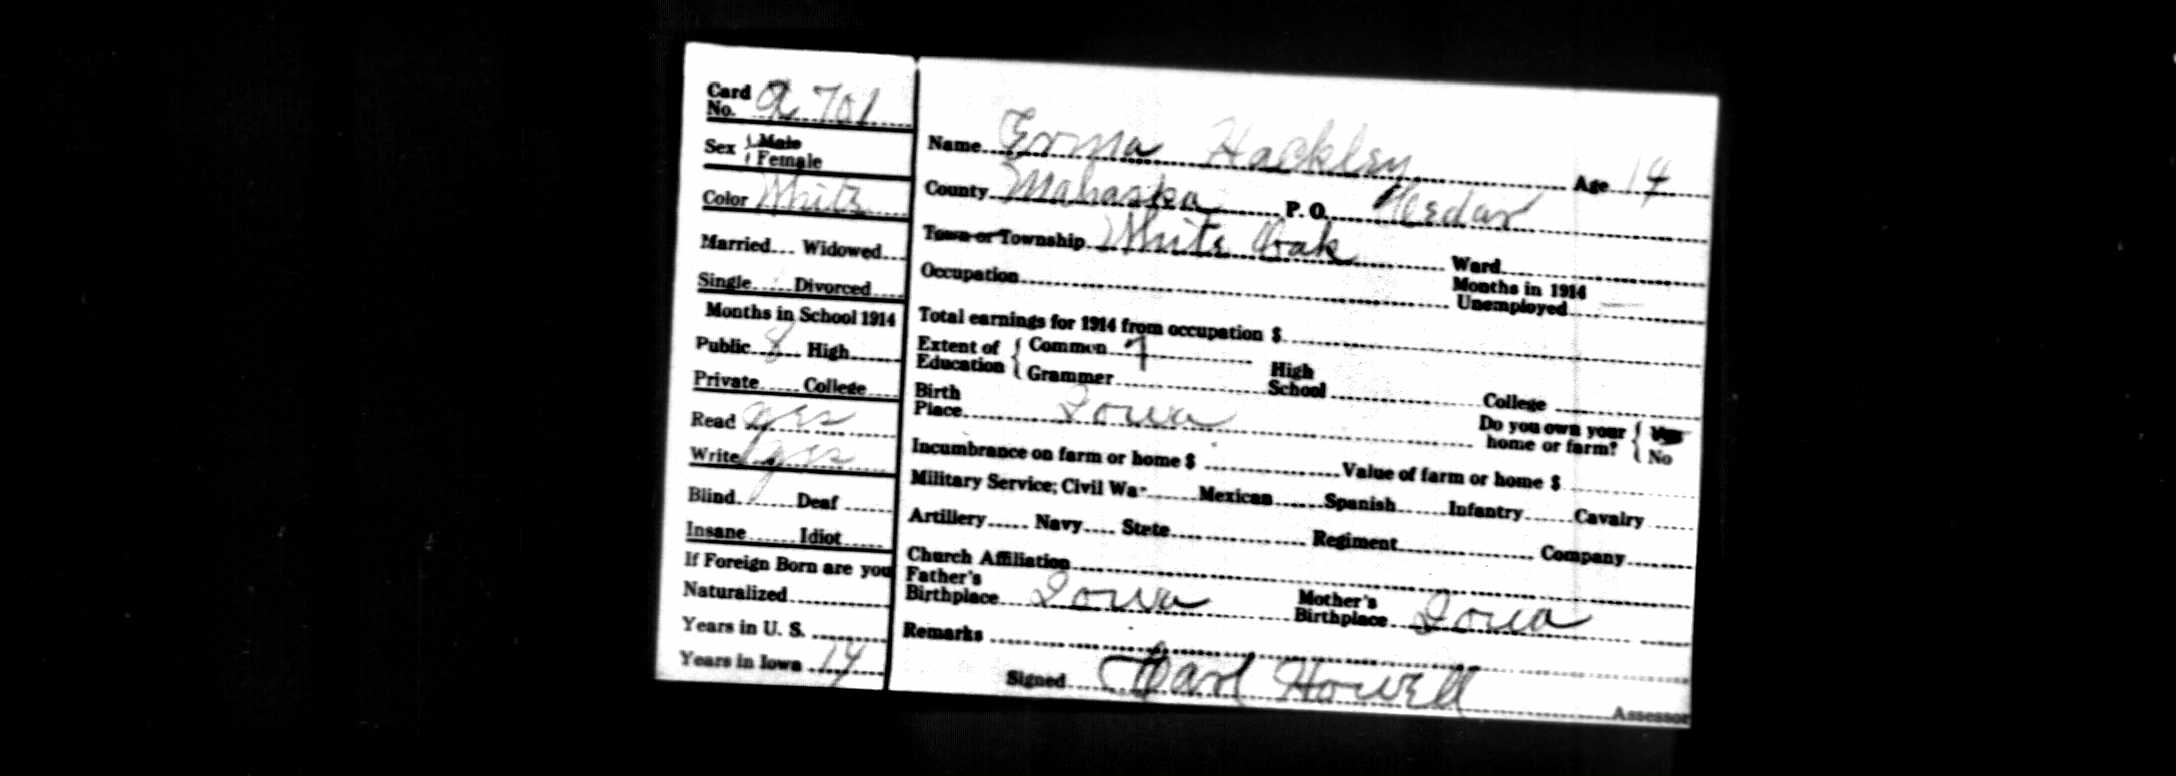 Card No. A 701
Sex { Male
Female
Color White
Married Widowed
Single Divorced
Months in School 1914
Public 8 High
Private College
Read yes
Write yes
Blind Deaf
Insane Idiot
If Foreign Born are you
Naturalized
Years in U. S.
Years in Iowa 14
Name Erma Hackley Age 14
County Mahaska P. O. Cedar
Town or Township White Oak Ward
Occupation Months in 1914 Unemployed —
Total earnings for 1914 from occupation $
Extent of Education { Common 7
Grammer High School College
Birth Place Iowa Do you own your home or farm? { Yes
No
Incumbrance on farm or home $ Value of farm or home $
Military Service; Civil War Mexican Spanish Infantry Cavalry
Artillery Navy Stete Regiment Company
Church Affiliation
Father's Birthplace Iowa Mother's Birthplace Iowa
Remarks
Signed Carl Howell Assessor